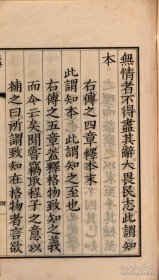 無情者不得盡其辭大畏民志此謂知
本
右傳之四章釋本末
此謂知本 此謂知之至也
右傳之五章蓋釋格物致知之義
而今亡矣閒嘗竊取程子之意以
補之曰所謂致知在格物者言欲